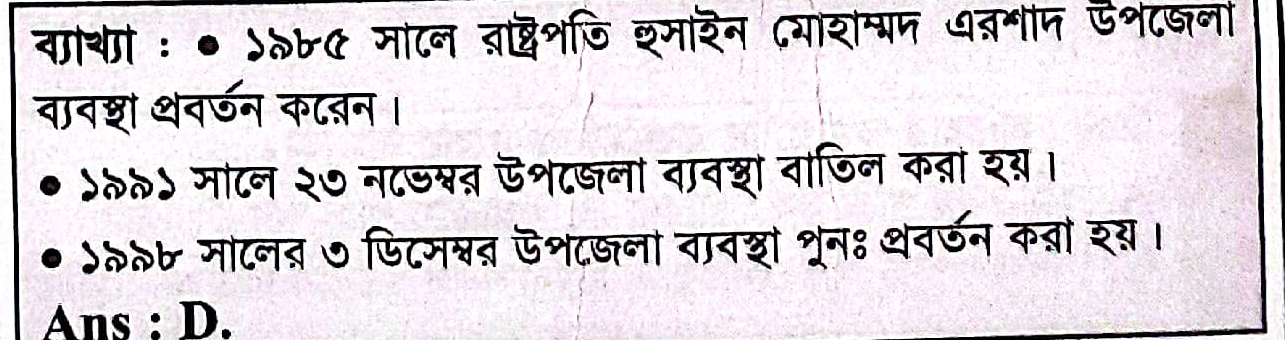 ব্যাখ্যা : ● ১৯৮৫ সালে রাষ্ট্রপতি হুসাইন মোহাম্মদ এরশাদ উপজেলা
ব্যবস্থা প্রবর্তন করেন।
● ১৯৯১ সালে ২৩ নভেম্বর উপজেলা ব্যবস্থা বাতিল করা হয়।
● ১৯৯৮ সালের ৩ ডিসেম্বর উপজেলা ব্যবস্থা পুনঃ প্রবর্তন করা হয়।
Ans : D.